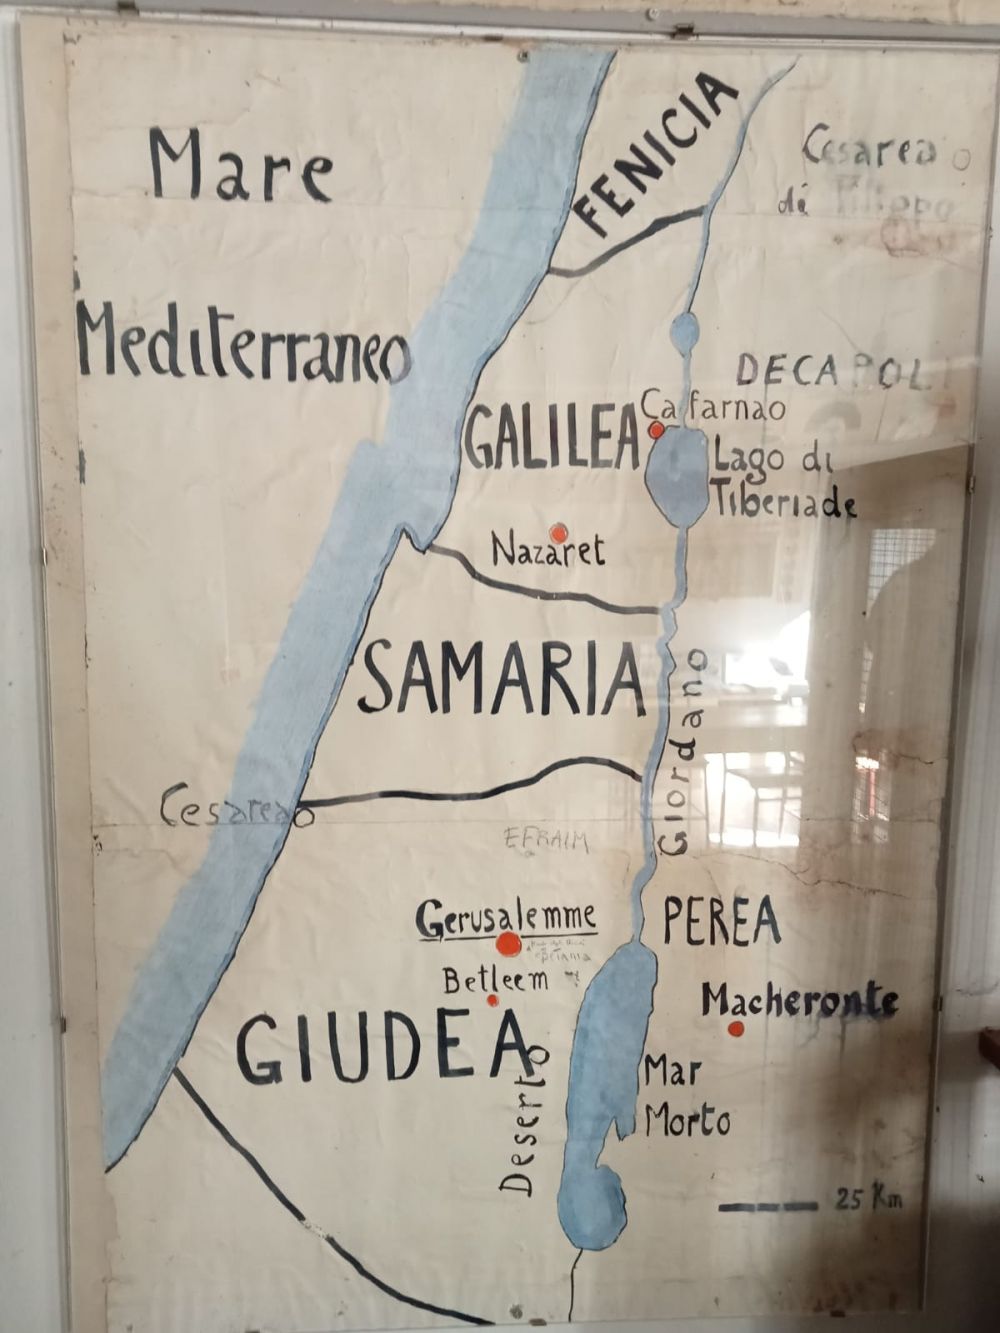 Mare
Mediterraneo
FENICIA
Cesarea
di Filippo
DECAPOLI
GALILEA
Cafarnao
Lago di
Tiberiade
Nazaret
SAMARIA
Giordano
Cesarea
EFRAIM
Gerusalemme
PEREA
Betleem
Macheronte
GIUDEA
Deserto
Mar
Morto
25 Km